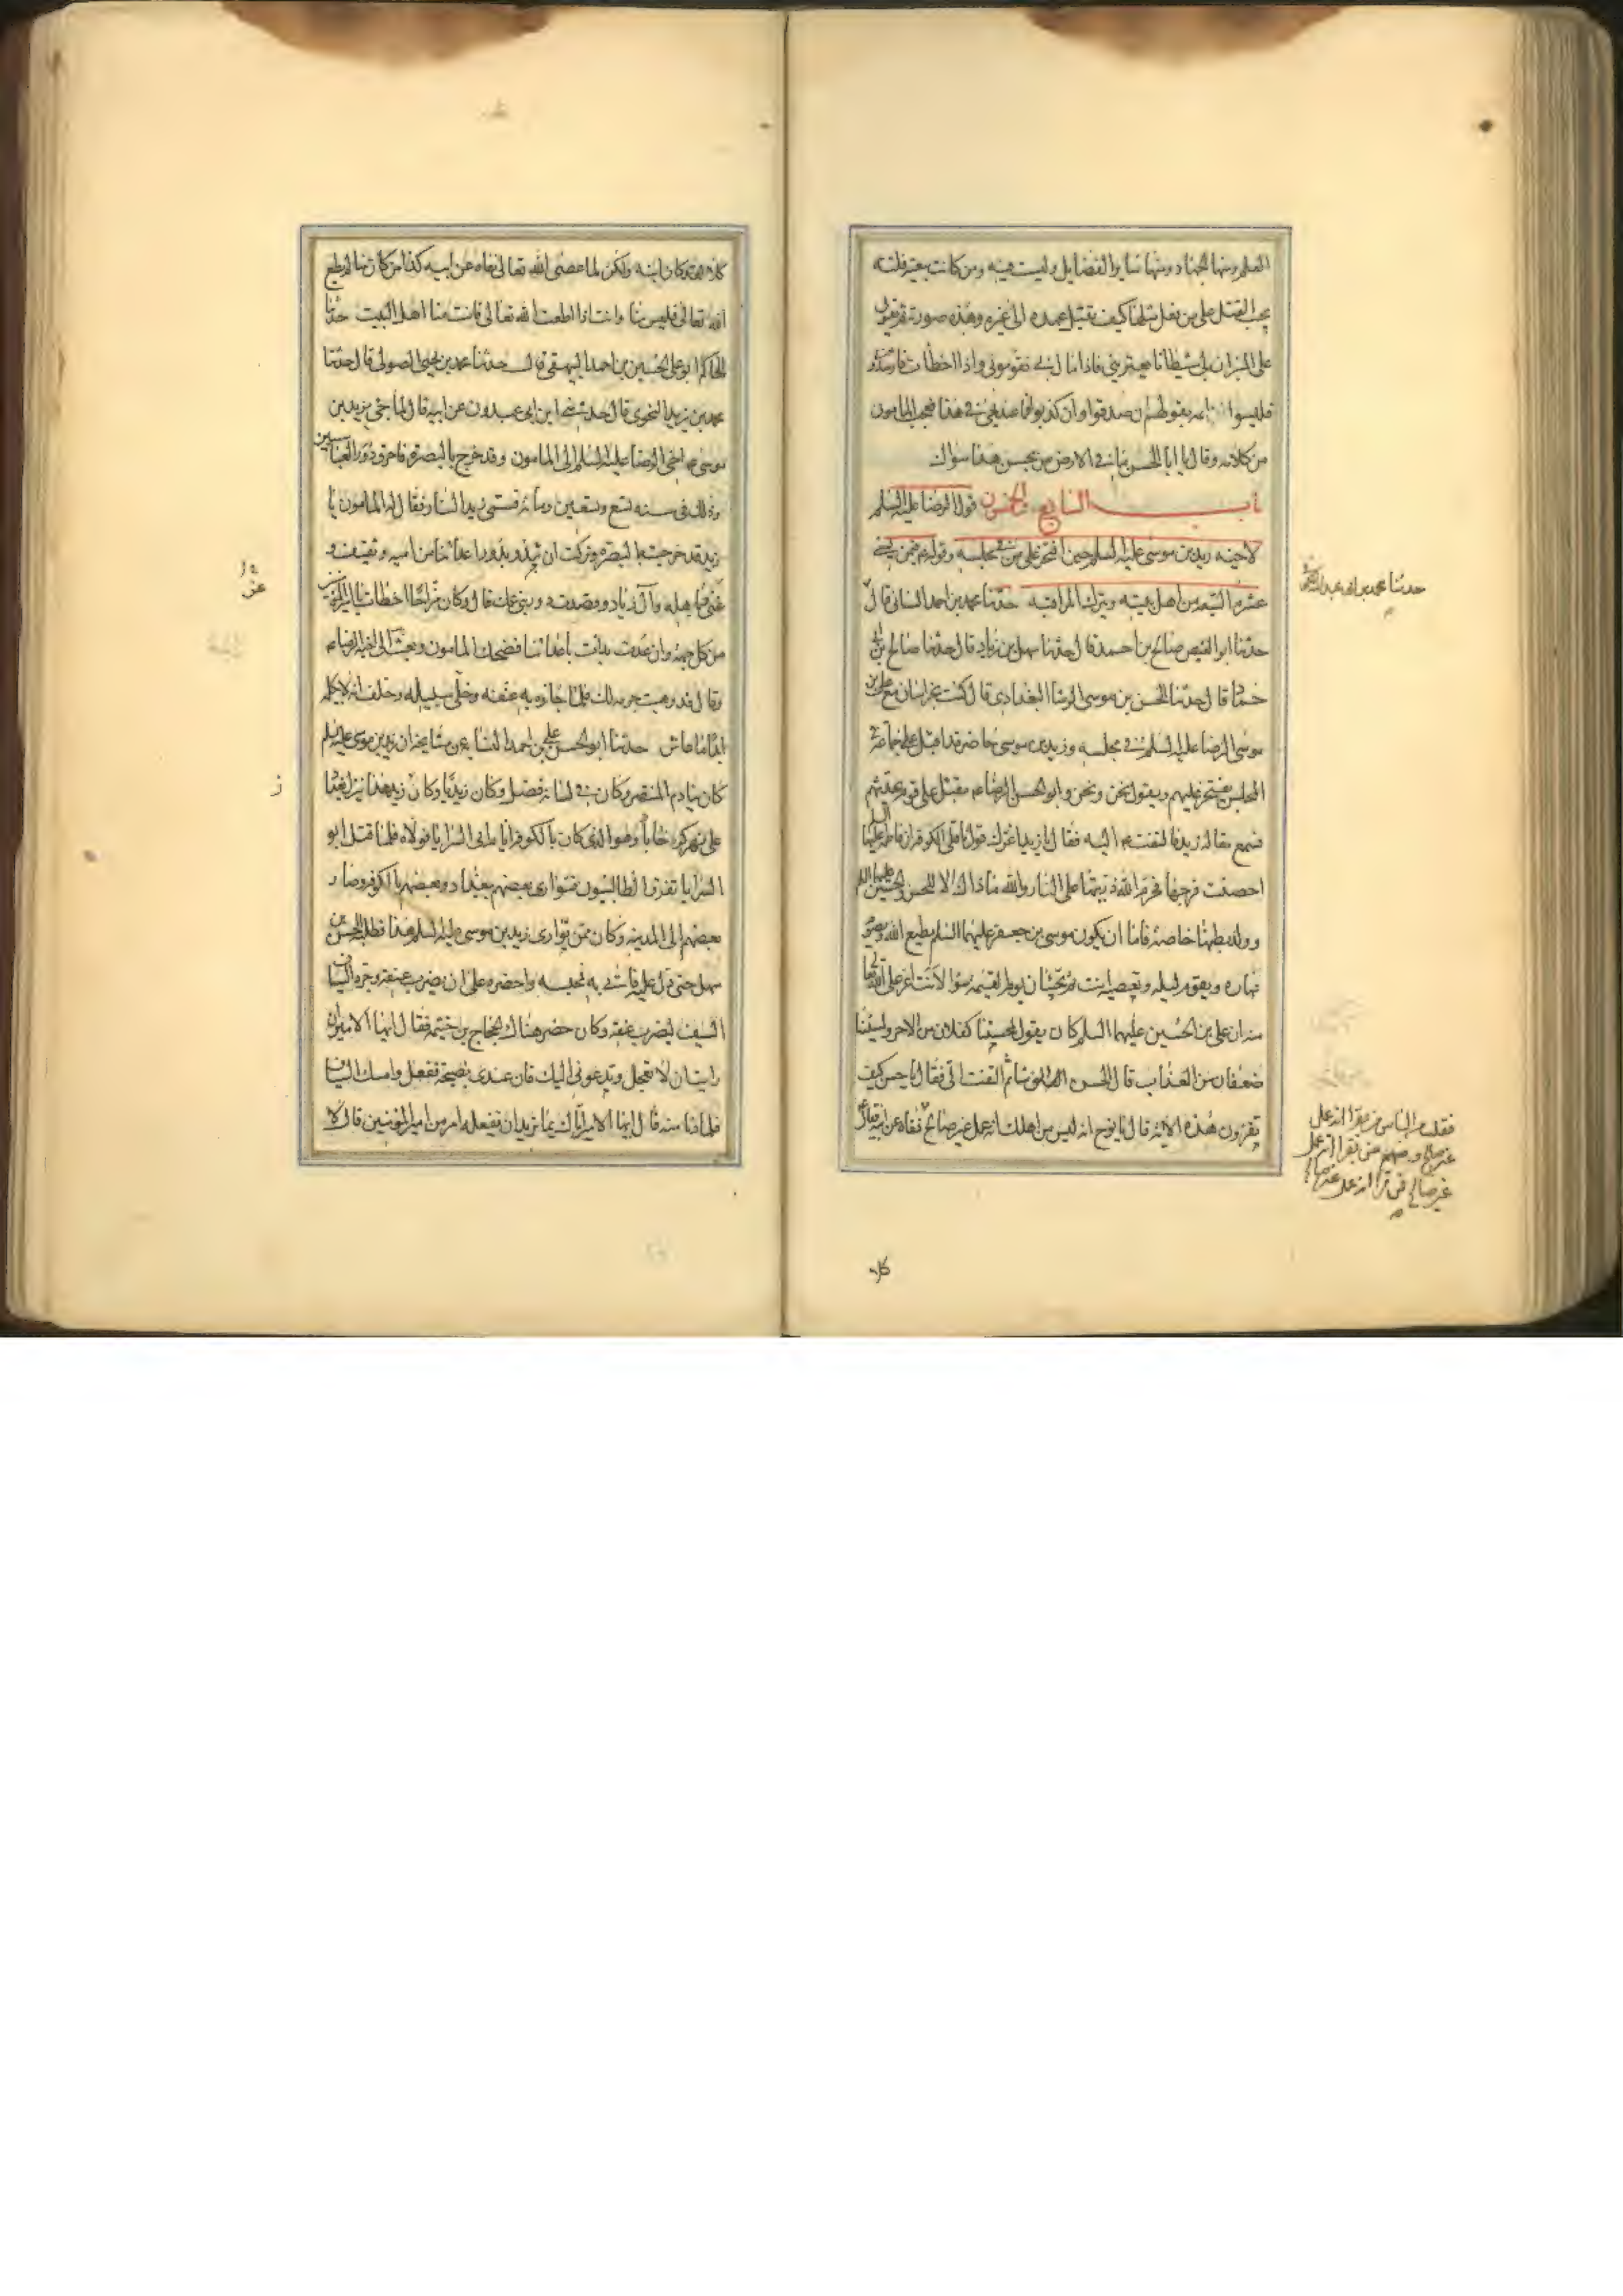 العلم ومنها الجهاد ومنها ساير الفضايل وليست فيه ومن كانت بيعته فلتة
يجب القتل على من فعل مثلها كيف يقبل عهده الى غيره وهذه صورته ثم يقول
على المنبر ان لى شيطانا يعترينى فاذا مال بى فقومونى واذا اخطأت فارشدونى
فليسوا ائمه بقولهم ان صدقوا وان كذبوا فما عندى فى هذا فعجب المامون
من كلامه وقال يا ابا الحسن ما فى الارض من يحسن هذا سواك
باب السابع والخمسون قول الرضا عليه السلم
لاخيه زيد بن موسى عليه السلم حين افتخر على من فى مجلسه وقوله ع فيمن يسئ
عشرة الشيعه من اهل بيته ويترك المراقبه حدثنا محمد بن احمد السنانى قال
حدثنا محمد بن ابى عبد الله الكوفى
حدثنا ابو الفيض صالح بن احمد قال حدثنا سهل بن زياد قال حدثنا صالح بن ابى
حماد قال حدثنا الحسن بن موسى الوشا البغدادى قال كنت بخراسان مع على بن
موسى الرضا عليه السلم فى مجلسه وزيد بن موسى حاضر قد اقبل على جماعة فى
المجلس يفتخر عليهم ويقول نحن ونحن وابو الحسن الرضا ع مقبل على قوم يحدثهم
فسمع مقالة زيد فالتفت ع اليه فقال يا زيد اغرك قول ناقلى الكوفه ان فاطمه عليها السلم
احصنت فرجها فحرم الله ذريتها على النار والله ما ذاك الا للحسن والحسين عليهما السلم
وولد بطنها خاصة فاما ان يكون موسى بن جعفر عليهما السلم يطيع الله ويصوم
نهاره ويقوم ليله وتعصيه انت ثم تجيئان يوم القيمه سوا لانت اعز على الله تعالى
منه ان على بن الحسين عليهما السلم كان يقول لمحسننا كفلان من الاجر ولمسيئنا
ضعفان من العذاب قال الحسن الوشا ثم التفت الى فقال يا حسن كيف
تقرؤن هذه الاية قال يا نوح انه ليس من اهلك انه عمل غير صالح نفاه عن ابيه فقال ع
فقلت من الناس من يقرا انه عمل
غير صالح ومنهم من يقرا انه عمل
غير صالح فمن قرا انه عمل غير صالح
كلا
كلا لقد كان ابنه ولكن لما عصى الله تعالى نفاه عن ابيه كذا من كان منا لم يطع
الله تعالى فليس منا وانت اذا اطعت الله تعالى فانت منا اهل البيت حدثنا
الحاكم ابو على الحسين بن احمد البيهقى قال حدثنا محمد بن يحيى الصولى قال حدثنا
محمد بن يزيد النحوى قال حدثنى ابن ابى عبدون عن ابيه قال لما جئ بزيد بن
موسى ع اخى الرضا عليه السلم الى المامون وقد خرج بالبصرة فاحرق دور العباسيين
وذلك فى سنه تسع وتسعين ومائة فسمى زيد النار فقال له المامون يا
زيد خرجت بالبصرة وتركت ان تبدو بدور اعدائنا من اميه وثقيف و
غنى وباهله وآل زياد وقصدت دور بنى عمك قال وكان مزاحا اخطات يا امير المومنين
من كل جهة وان عدت بدات باعدائنا فضحك المامون وبعث الى اخيه الرضا ع
وقال قد وهبت جرمه لك فلما جاؤه به عنفه وخلى سبيله وحلف ان لا يكلمه
ابدا ما عاش حدثنا ابو الحسن على بن احمد النسابه عن مشايخه ان زيد بن موسى عليه السلم
كان ينادم المنتصر وكان فى لسانه فضل وكان زيديا وكان زيد هذا ينزل بغداد
على نهر كرخايا وهو الذى كان بالكوفه ايام ابى السرايا فولاه فلما قتل ابو
السرايا تفرق الطالبيون فتوارى بعضهم ببغداد وبعضهم بالكوفه وصار
بعضهم الى المدينه وكان ممن توارى زيد بن موسى عليه السلم هذا فطلبه الحسن بن
سهل حتى دل عليه فاتى به فحبسه واحضره على ان يضرب عنقه وجرد السياف
السيف ليضرب عنقه وكان حضر هناك الحجاج بن خيثمه فقال ايها الامير ان
رايت ان لا تعجل وتدعونى اليك فان عندى نصيحة ففعل وامسك السياف
فلما دنا منه قال ايها الامير اتاك بما تريد ان تفعله امر من امير المومنين قال لا